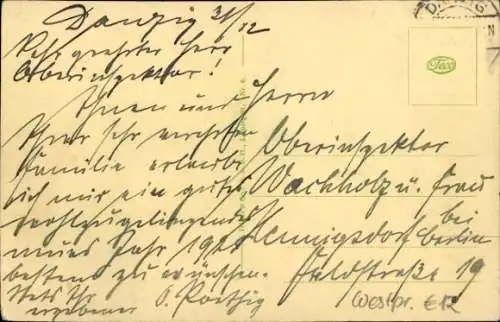 Danzig 31/12
Sehr geehrter Herr
Oberinspektor!
Ihnen und
Ihrer sehr verehrten
Familie erlaube
ich mir ein gutes
neues Jahr
bestens zu wünschen.
Stets Ihr
ergebener
Herrn
Oberinspektor
Wachholz u. Frau
bei
Hennigsdorf Berlin
Feldstraße 19
Westpr. €12